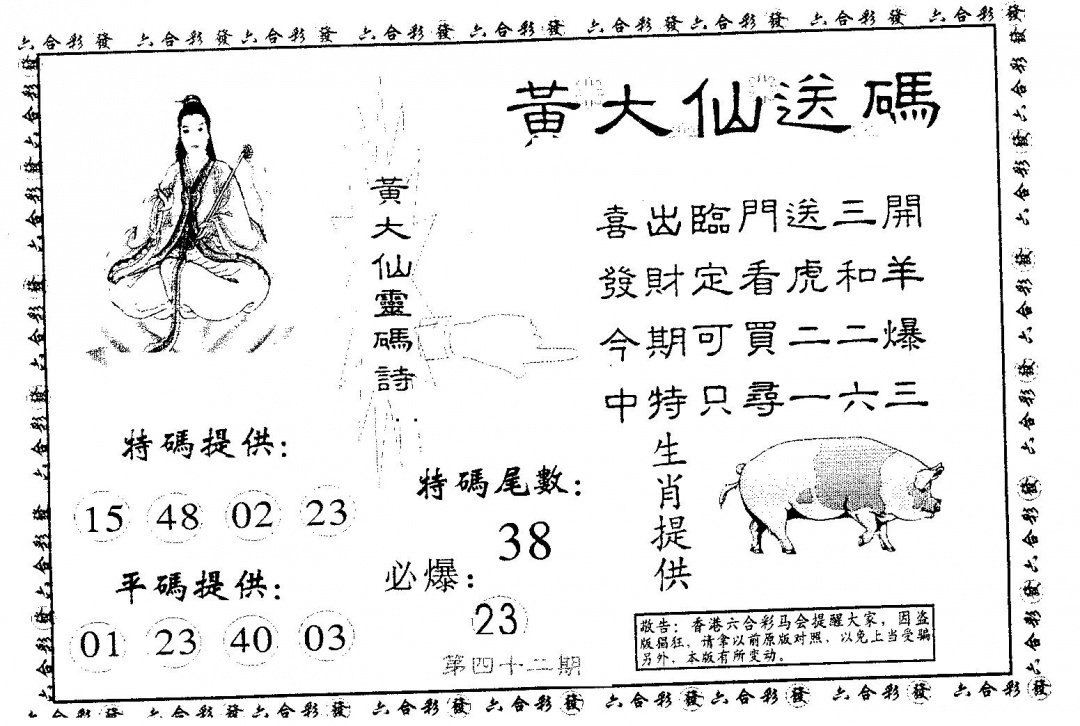 六合彩發 六合彩發六合彩發 六合彩發 六合彩發 六合彩發六合彩發 六合彩發 六合彩發
黃大仙送碼
黃大仙靈碼詩:
喜出臨門送三開
發財定看虎和羊
今期可買二二爆
中特只尋一六三
特碼提供:
15 48 02 23
平碼提供:
01 23 40 03
特碼尾數:
38
必爆:
23
第四十二期
生肖提供
敬告：香港六合彩马会提醒大家，因盗
版猖狂，请拿以前原版对照，以免上当受骗
另外，本版有所变动。
六合彩發 六合彩發六合彩發 六合彩發 六合彩發 六合彩發六合彩發 六合彩發 六合彩發